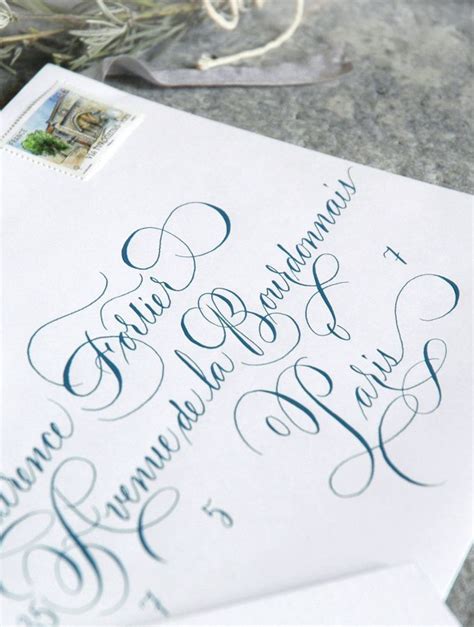 FRANCE
arence Fortier
35 Avenue de la Bourdonnais
7 5 Paris 7